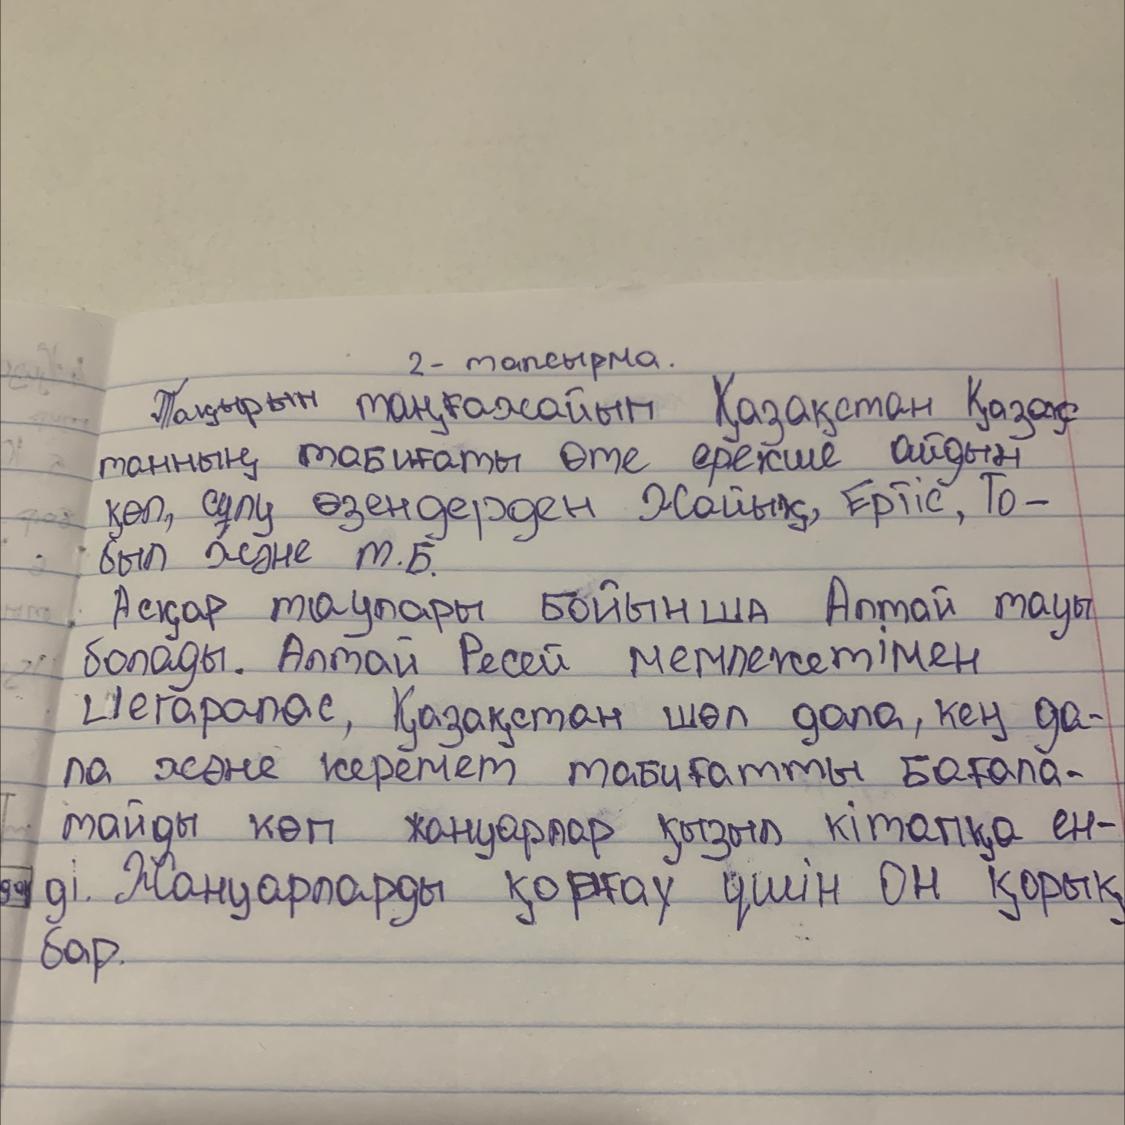 2- тапсырма.
Тақырып таңғажайып Қазақстан Қазақс
танның табиғаты өте ерекше айдын
көл, сұлу өзендерден Жайық, Ертіс, То-
был және т.б.
Асқар таулары бойынша Алтай тауы
болады. Алтай Ресей мемлекетімен
Шегаралас, Қазақстан шөл дала, кең да-
ла және керемет табиғатты бағала-
майды көп жануарлар қызыл кітапқа ен-
ді. Жануарларды қорғау үшін ОН қорық
бар.